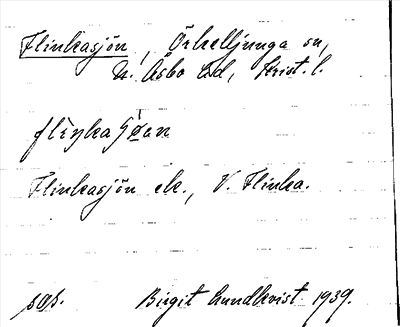 Flinkasjön, Örkelljunga sn,
N. Åsbo hd, Krist. l.
Flinkasjön ek., V. Flinka.
Birgit Lundkvist 1939.